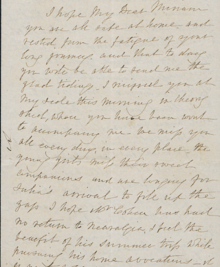 I hope My Dear Miriam
you are all safe at home, and
rested from the fatigue of your
long journey, and that to day
you will be able to send me the
glad tidings. I missed you at
my side this morning in
where you have been wont
to accompany me. we miss you
all every day, in every place, the
young girls miss their sweet
companions and are longing for
Julia's arrival to fill up the
gap. I hope Mr Cohen has had
no return to neuralgia, & feel the
benefit of his summer trip while
pursuing his home avocations.